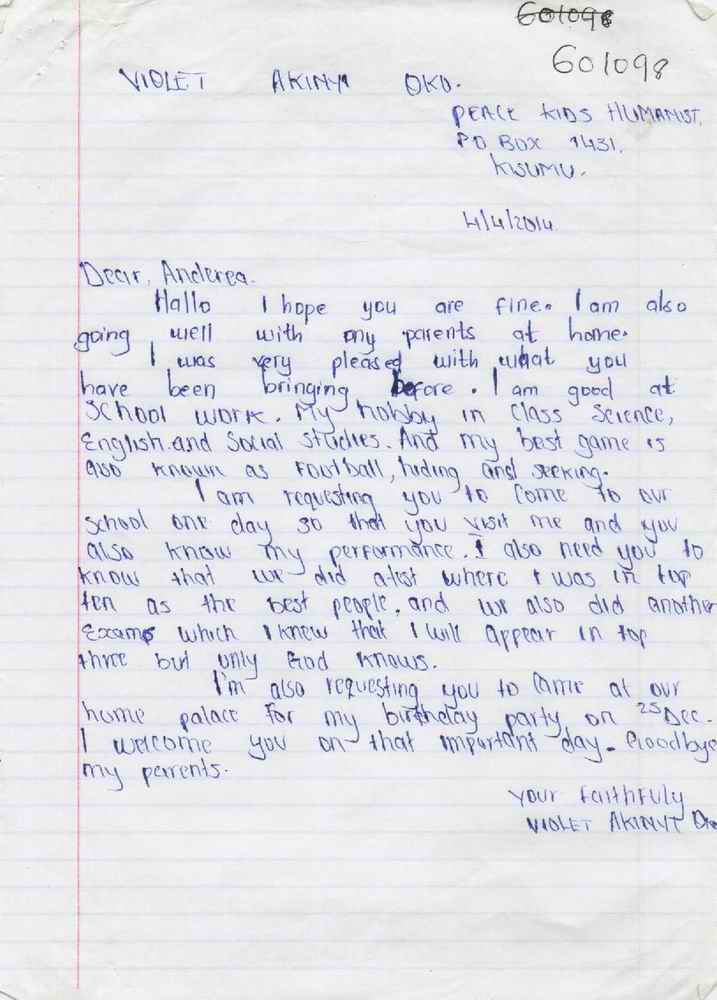 601098
601098
VIOLET AKINYI OKO.
PEACE KIDS HUMANIST.
PO BOX 1431.
KISUMU.
4/4/2014
Dear, Anderea.
Hallo I hope you are fine. I am also
going well with my parents at home.
I was very pleased with what you
have been bringing before. I am good at
School work. My hobby in class Science,
English and Social studies. And my best game is
also known as Football, hiding and seeking.
I am requesting you to come to our
school one day so that you visit me and you
also know my performance. I also need you to
know that we did a test where I was in top
ten as the best people. and we also did another
Exams which I knew that I will appear in top
three but only God knows.
I'm also requesting you to came at our
home palace for my birthday party on 25 Dec.
I welcome you on that important day. Goodbye
my parents.
Your Faithfuly
VIOLET AKINYI